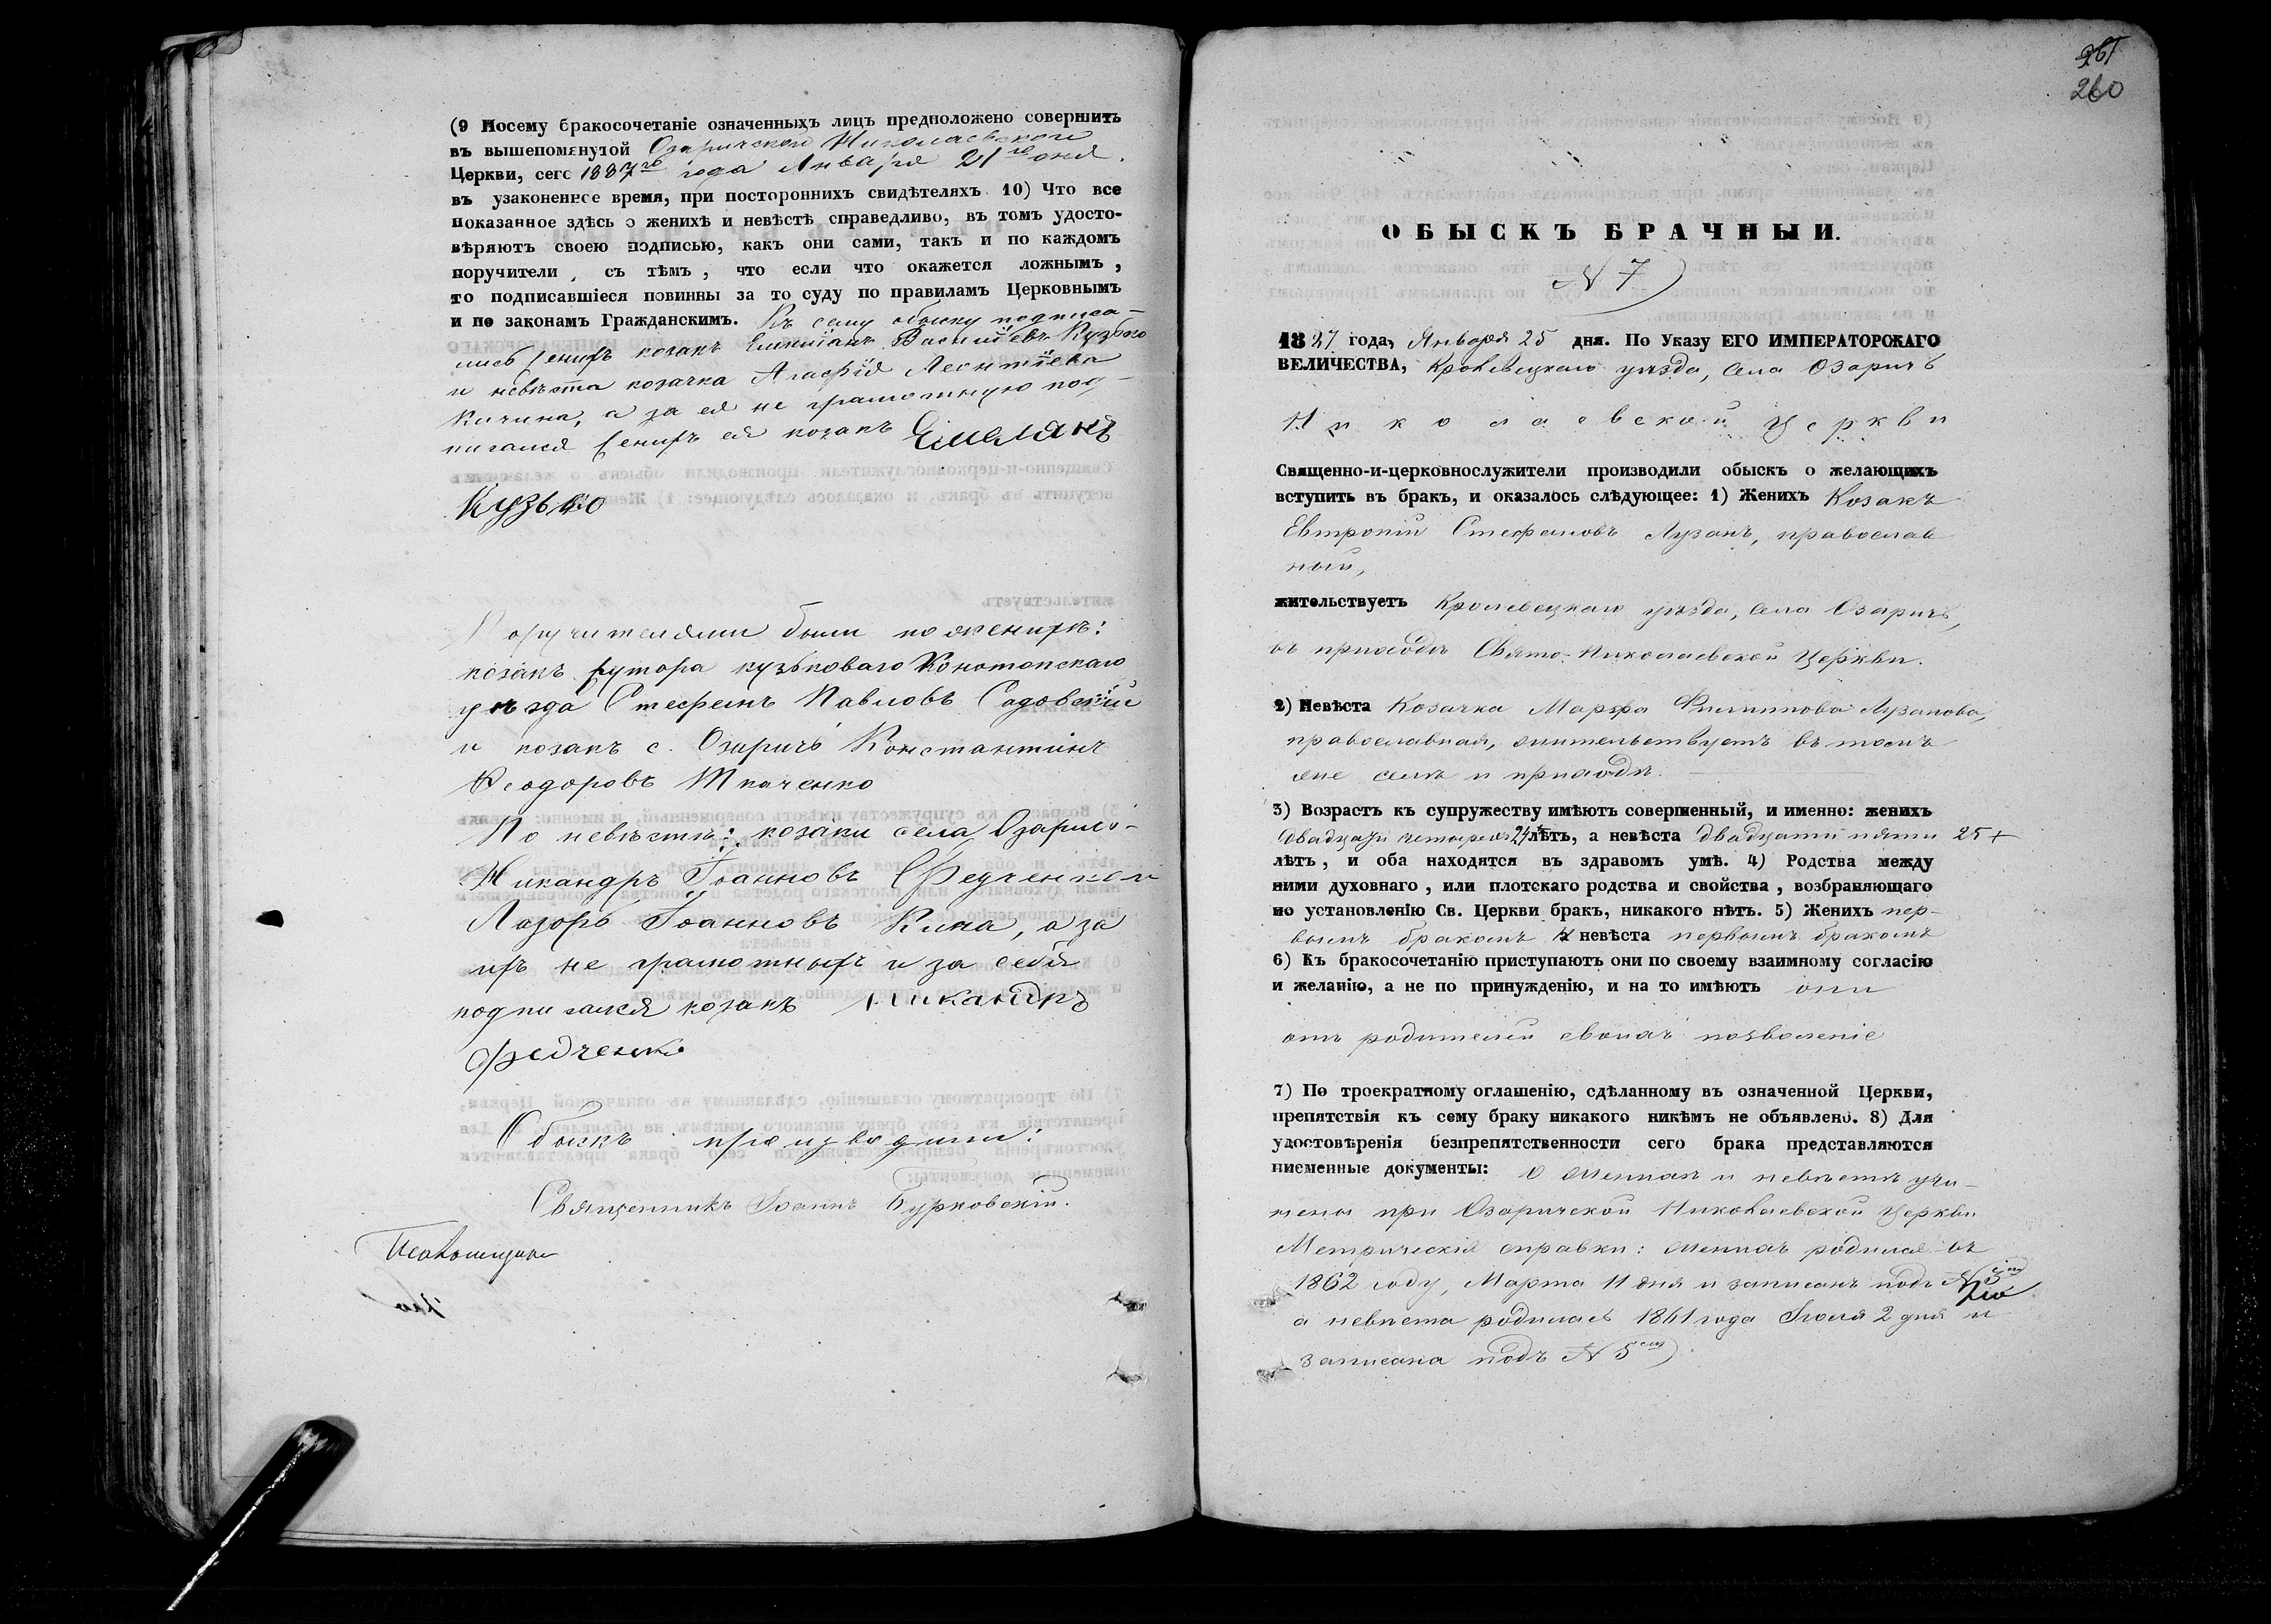 (9 Посему бракосочетаніе означенныхъ лицъ предположено совершить
въ вышепомянутой Озаричской Николаевской
Церкви, сего 1887го года Января 21го дня.
въ узаконенное время, при постороннихъ свидѣтеляхъ 10) Что все
показанное здѣсь о женихѣ и невѣстѣ справедливо, въ томъ удосто-
вѣряютъ своею подписью, какъ они сами, такъ и по каждомъ
поручители, съ тѣмъ, что если что окажется ложнымъ,
то подписавшіеся повинны за то суду по правиламъ Церковнымъ
и по законамъ Гражданскимъ. Къ сему обыску подписа-
лись женихъ козакъ Емиліанъ Василіевъ Кузько
и невѣста козачка Агафія Леонтіева
Кичина, а за ея не грамотную под-
писался женихъ ея козакъ Емелянъ
Кузько
Поручителями были по женихѣ:
козакъ хутора кузьковаго Конотопскаго
уѣзда Стефанъ Павловъ Садовскій
и козакъ с. Озаричъ Константінъ
Феодоровъ Ткаченко
По невѣстѣ: козаки села Озаричъ-
Никандръ Іоанновъ Федченко и
Лазорь Іоанновъ Кича, а за
ихъ не грамотныхъ и за себя
подписался козакъ Никандръ
Федченко
Обыскъ производили:
Священникъ Іоаннъ Бурковскій.
Псаломщикъ
261
260
ОБЫСКЪ БРАЧНЫЙ.
N 7
1887 года, Января 25 дня. По Указу ЕГО ИМПЕРАТОРСКАГО
ВЕЛИЧЕСТВА, Кролевецкаго уѣзда, села Озаричъ
Николаевской Церкви
Священно-и-церковнослужители производили обыскъ о желающихъ
вступить въ бракъ, и оказалось слѣдующее: 1) Женихъ Козакъ
Евтропій Стефановъ Лузанъ, православ
ный,
жительствуетъ Кролевецкаго уѣзда, села Озаричъ,
въ приходѣ Свято-Николаевской Церкви.
2) Невѣста Козачка Марфа Филиппова Лузанова,
православная, жительствуетъ въ томъ
же селѣ и приходѣ.
3) Возрастъ къ супружеству имѣютъ совершенный, и именно: женихъ
двадцати четырехъ 24 лѣтъ, а невѣста двадцати пяти 25 +
лѣтъ, и оба находятся въ здравомъ умѣ. 4) Родства между
ними духовнаго, или плотскаго родства и свойства, возбраняющаго
по установленію Св. Церкви бракъ, никакого нѣтъ. 5) Женихъ пер-
вымъ бракомъ и невѣста первымъ бракомъ
6) Къ бракосочетанію приступаютъ они по своему взаимному согласію
и желанію, а не по принужденію, и на то имѣютъ они
отъ родителей своихъ позволеніе
7) По троекратному оглашенію, сдѣланному въ означенной Церкви,
препятствія къ сему браку никакого никѣмъ не объявлено. 8) Для
удостовѣренія безпрепятственности сего брака представляются
писменные документы: О женихѣ и невѣстѣ учи-
нены при Озаричской Николаевской Церкви
Метрическія справки: женихъ родился въ
1862 году, Марта 11 дня и записанъ подъ N
а невѣста родилась 1861 года Іюля 2 дня и
записана подъ N 5